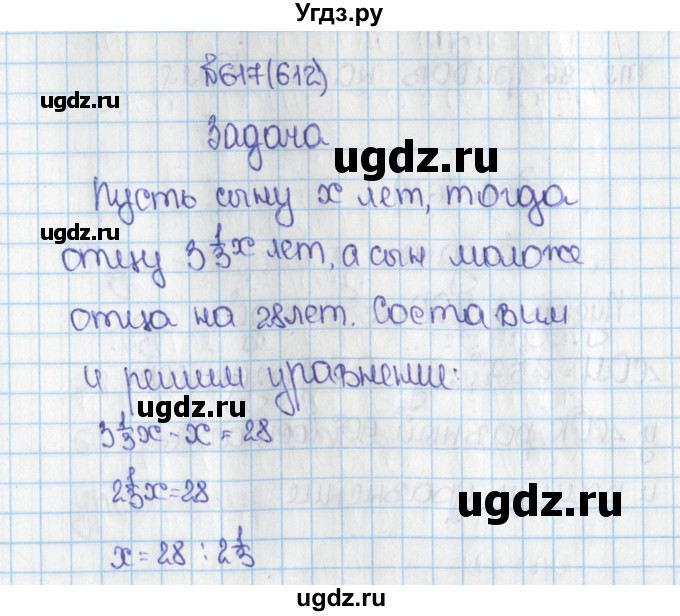 Угдз.ру
№617(612)
ugdz.ru
Задача
ugdz.ru
Пусть сыну x лет, тогда
ugdz.ru
отцу 3 1/3 x лет, а сын моложе
отца на 28 лет. Составим
и решим уравнение:
ugdz.ru
3 1/3 x - x = 28
2 1/3 x = 28
ugdz.ru
x = 28 : 2 1/3
ugdz.ru